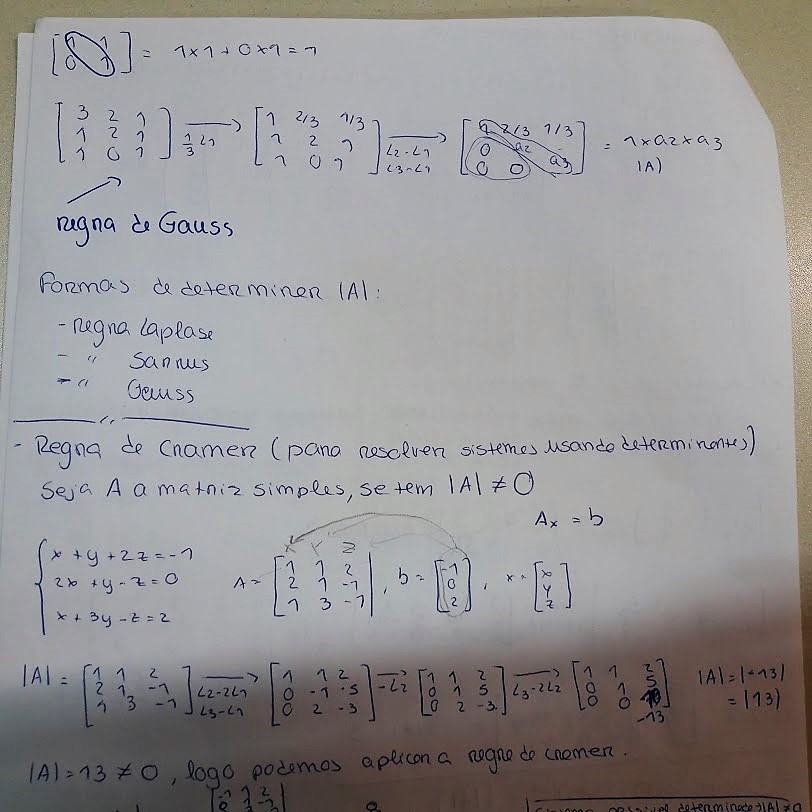 [1 1; 0 1] = 1x1 + 0x1 = 1
[3 2 1; 1 2 1; 1 0 1] → 1/3 L1 [1 2/3 1/3; 1 2 1; 1 0 1] → L2-L1 L3-L1 [1 2/3 1/3; 0 a2; 0 0 a3] = 1xa2xa3
|A)
regna de Gauss
Formas de determiner |A|:
- regna Laplase
- " Sarrus
- " Gauss
"
- Regna de cramer (para resolver sistemes usando determinentes)
Seja A a matriz simples, se tem |A| ≠ 0
Ax = b
x Y Z
{ x + y + 2z = -1
2x + y - z = 0
x + 3y - z = 2
A = [1 1 2; 2 1 -1; 1 3 -1|, b = [-1; 0; 2], x = [x; y; z]
|A| = [1 1 2; 2 1 -1; 1 3 -1] → L2-2L1 L3-L1 [1 1 2; 0 -1 -5; 0 2 -3] → -L2 [1 1 2; 0 1 5; 0 2 -3] → L3-2L2 [1 1 2; 0 1 5; 0 0 -13] |A| = |-13|
= |13)
|A| = 13 ≠ 0, logo podemos aplicar a regne de cramer.